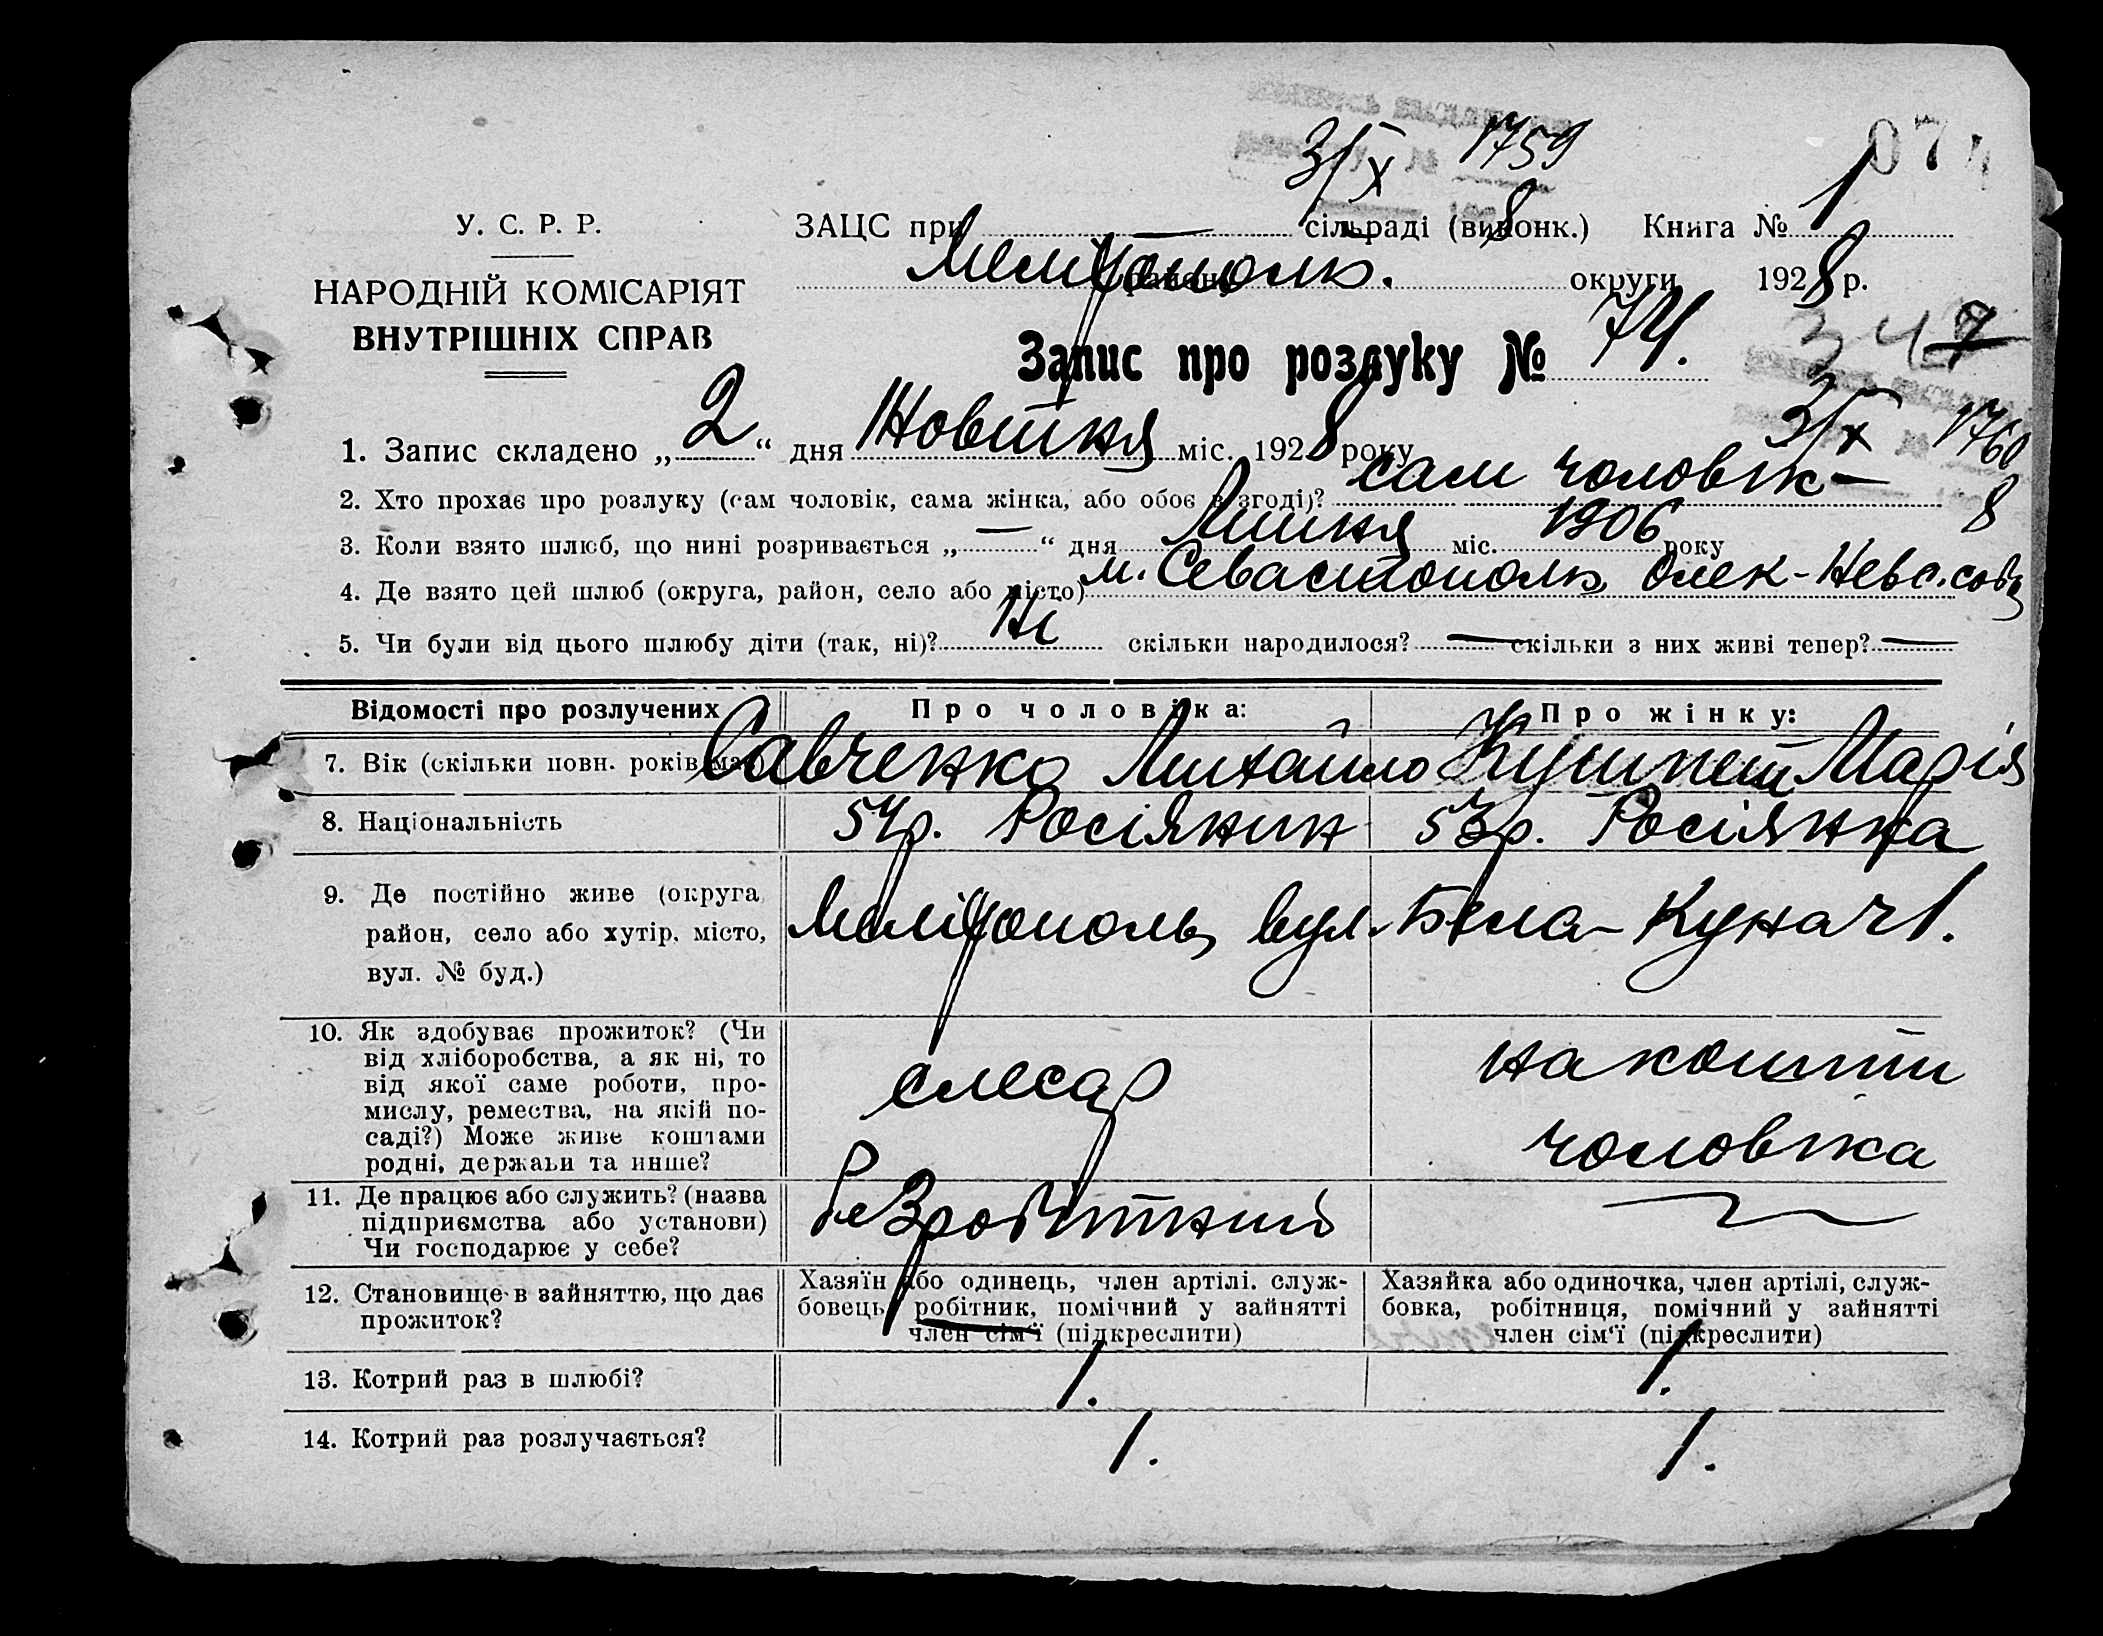 3/X 1759
8
074
У. С. Р. Р.
НАРОДНІЙ КОМІСАРІЯТ
ВНУТРІШНІХ СПРАВ
ЗАЦС при — сільраді (виконк.) Книга № 1
Мелітополь. району округи 1928 р.
Запис про розлуку № 74.
347
3/X 1760
8
1. Запис складено „2“ дня Жовтня міс. 1928 року
2. Хто прохає про розлуку (сам чоловік, сама жінка, або обоє в згоді)? сам чоловік —
3. Коли взято шлюб, що нині розривається „—“ дня Липня міс. 1906 року
4. Де взято цей шлюб (округа, район, село або місто) м. Севастополь, Олек-Невс. соб.
5. Чи були від цього шлюбу діти (так, ні)? Ні скільки народилося? — скільки з них живі тепер? —
Відомості про розлучених Про чоловіка: Про жінку:
Савченко Михайло Марія
7. Вік (скільки повн. років має)
8. Національність 54р. Росіянин 53р. Росіянка
9. Де постійно живе (округа
район, село або хутір, місто,
вул. № буд.)
Мелітополь, вул. Бела-Куна ч 1.
10. Як здобуває прожиток? (Чи
від хліборобства, а як ні, то
від якої саме роботи, про-
мислу, ремества, на якій по-
саді?) Може живе коштами
родні, держави та инше?
слесар
на кошти
чоловіка
11. Де працює або служить? (назва
підприємства або установи)
Чи господарює у себе?
Безробітний —
12. Становище в зайняттю, що дає
прожиток?
Хазяїн або одинець, член артілі, служ-
бовець, робітник, помічний у зайнятті
член сім'ї (підкреслити)
Хазяйка або одиночка, член артілі, служ-
бовка, робітниця, помічний у зайнятті
член сім'ї (підкреслити)
13. Котрий раз в шлюбі? 1. 1.
14. Котрий раз розлучається? 1. 1.